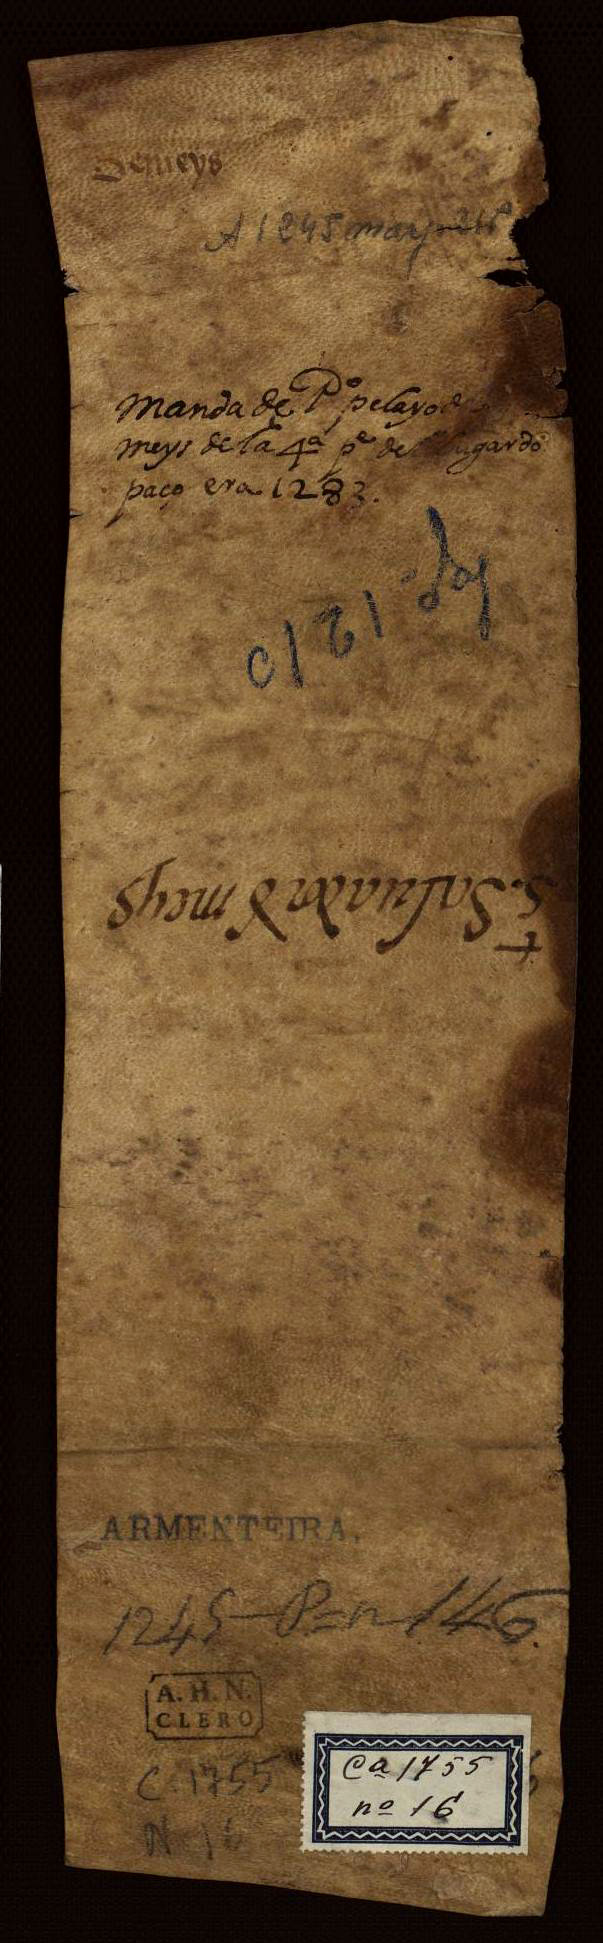 de meys
A 1245 mayo
Manda de Pº pelayo de
meys de la 4ª pᵉ del lugar do
paço era 1283.
S. Saluador d meys
ARMENTEIRA.
1245 P=n 146.
A. H. N.
CLERO
C. 1755
N 16
Cª 1755
nº 16